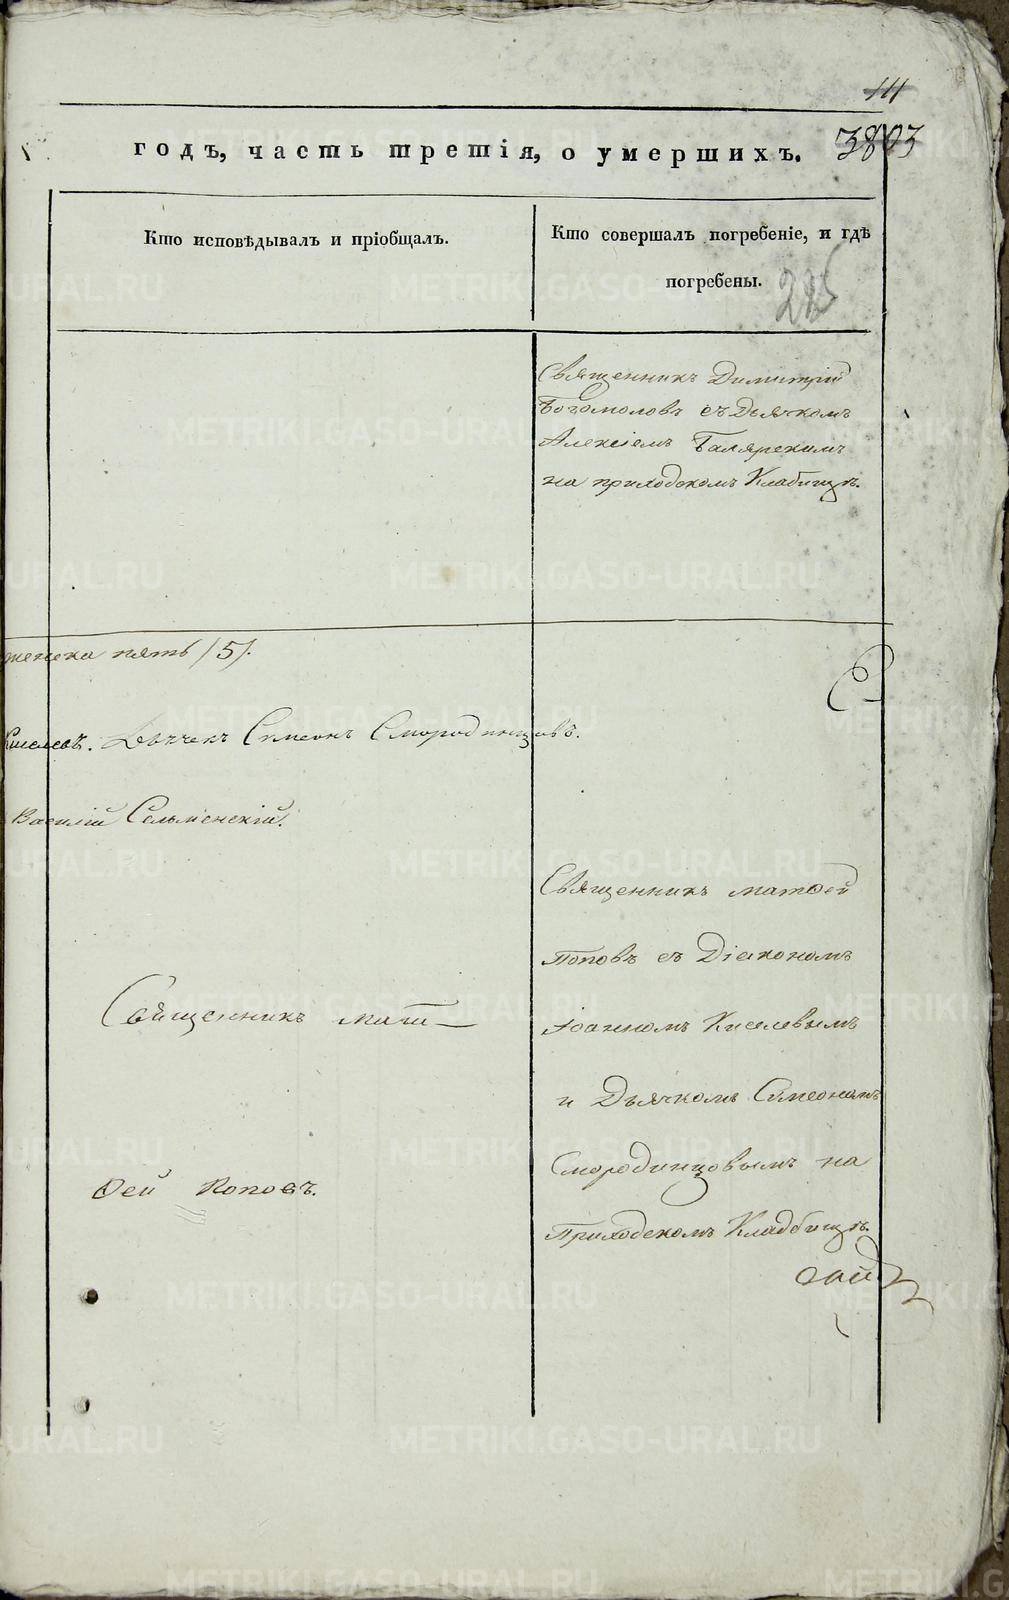 111
годъ, часть третія, о умершихъ.
3803
Кто исповѣдывалъ и пріобщалъ.
Кто совершалъ погребеніе, и гдѣ
погребены.
Священникъ Димитрій
Богомоловъ съ Дьячкомъ
Алексіемъ
на приходскомъ Кладбищѣ.
женска пять /5/.
Киселевъ. Дьячекъ Симеонъ Смородинцовъ.
Василій
Священникъ Матѳей
Поповъ съ Діакономъ
Іоанномъ Киселевымъ
и Дьячкомъ Симеономъ
Смородинцовымъ на
Приходскомъ Кладбищѣ.
Священникъ Мат-
ѳей Поповъ.
METRIKI.GASO-URAL.RU